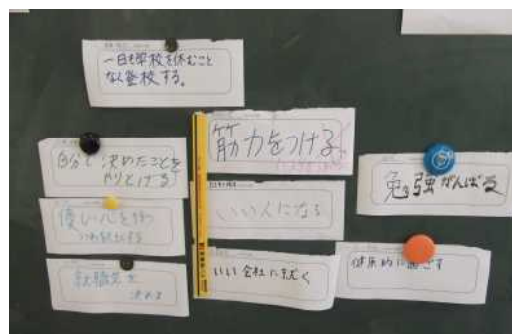 一日も学校を休むこと
なく登校する。
自分で決めたことを
やりとげる
優しい心を持つ
就職先を
決める
筋力をつける
いい人になる
いい会社に就く
勉強がんばる
健康的に過ごす